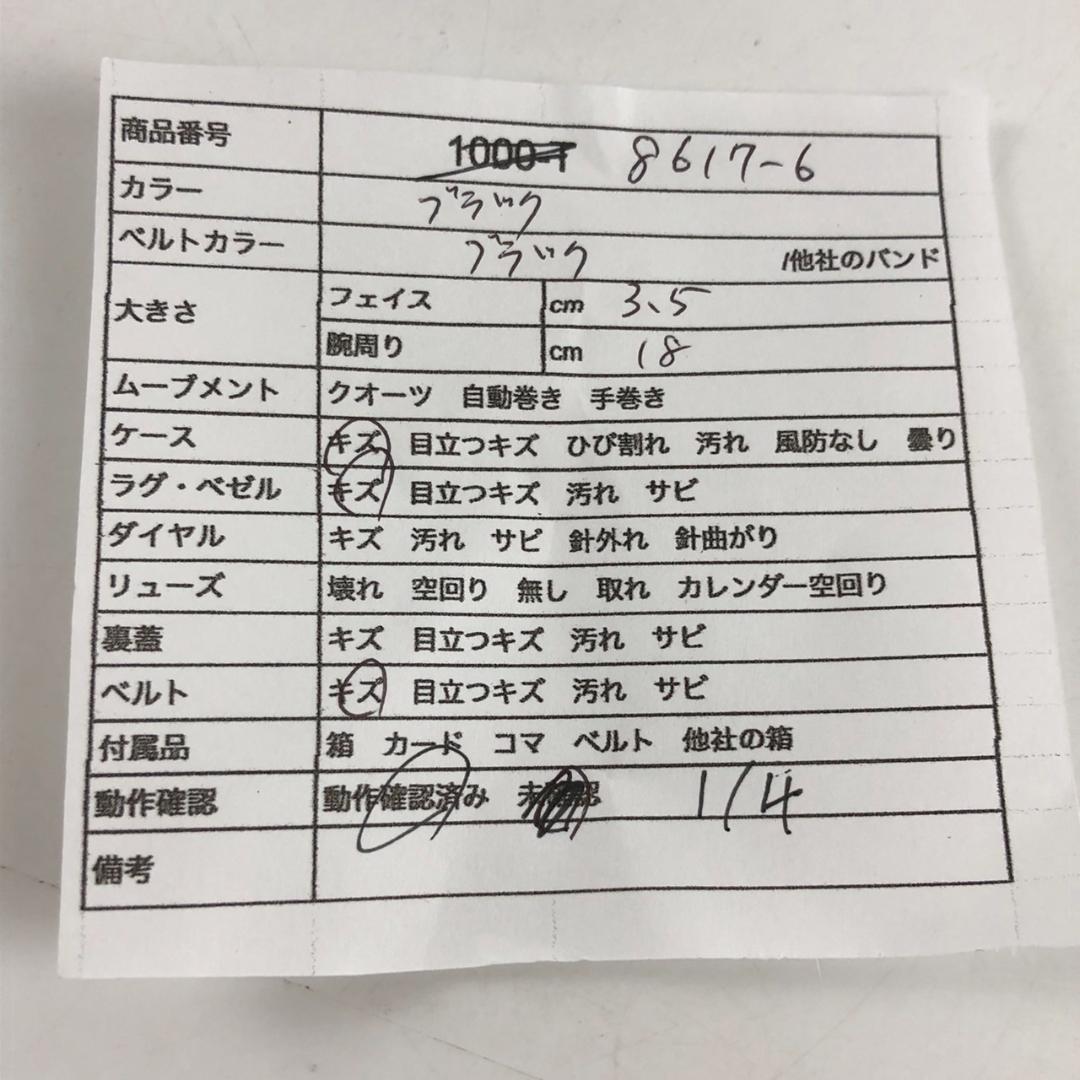 商品番号 1000-1 8617-6
カラー ブラック
ベルトカラー ブラック /他社のバンド
大きさ フェイス cm 3.5
腕周り cm 18
ムーブメント クオーツ 自動巻き 手巻き
ケース キズ 目立つキズ ひび割れ 汚れ 風防なし 曇り
ラグ・ベゼル キズ 目立つキズ 汚れ サビ
ダイヤル キズ 汚れ サビ 針外れ 針曲がり
リューズ 壊れ 空回り 無し 取れ カレンダー空回り
裏蓋 キズ 目立つキズ 汚れ サビ
ベルト キズ 目立つキズ 汚れ サビ
付属品 箱 カード コマ ベルト 他社の箱
動作確認 動作確認済み 未確認 1/4
備考